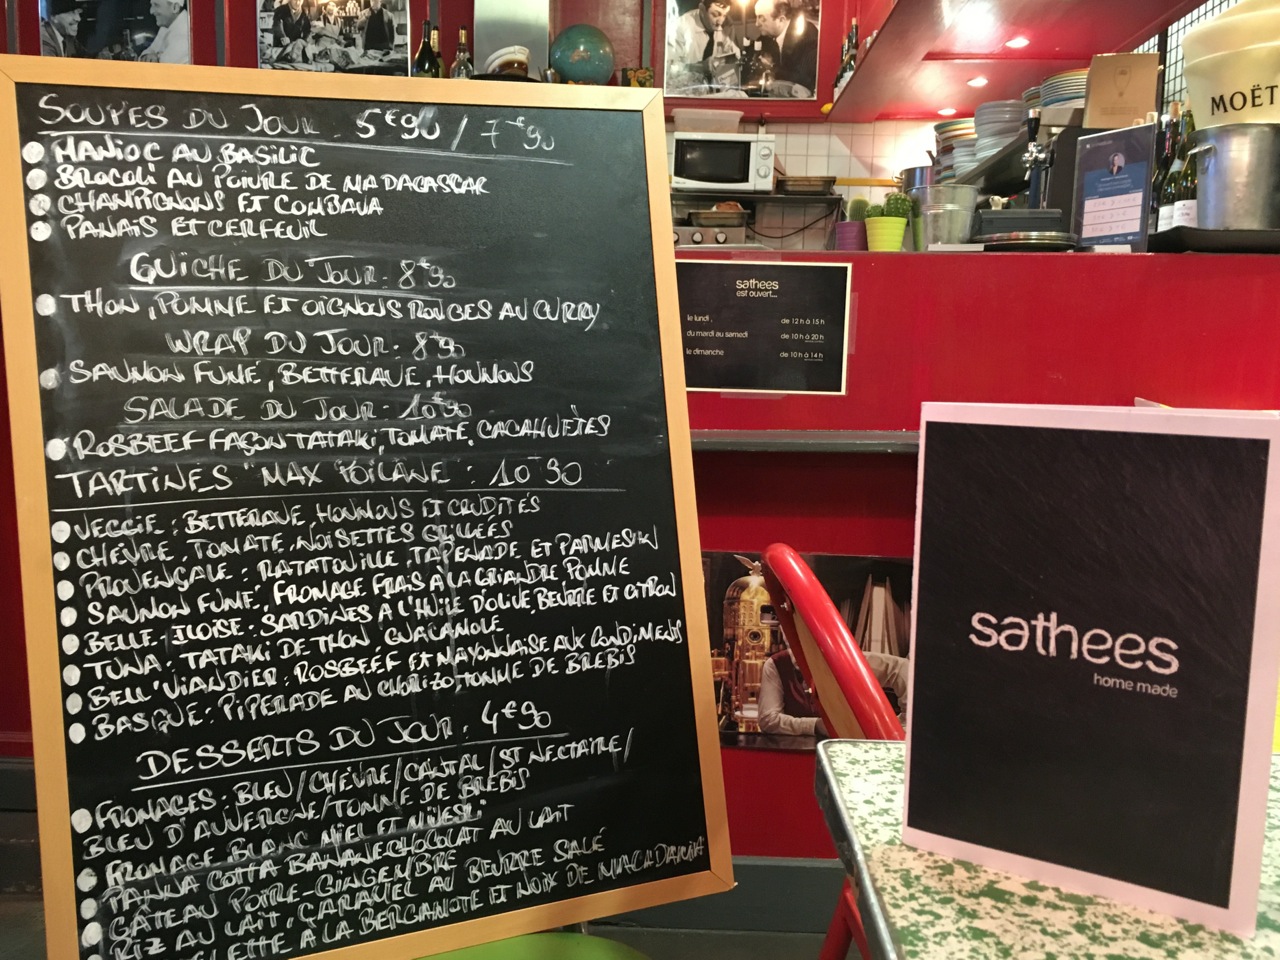 SOUPES DU JOUR . 5€90 / 7€90
MANIOC AU BASILIC
BROCOLI AU POIVRE DE MADAGASCAR
CHAMPIGNONS ET COMBAVA
PANAIS ET CERFEUIL
QUICHE DU JOUR . 8€90
THON, POMME ET OIGNONS ROUGES AU CURRY
WRAP DU JOUR : 8€90
SAUMON FUMÉ, BETTERAVE, HOUMOUS
SALADE DU JOUR . 10€90
ROSBEEF FAÇON TATAKI, TOMATE, CACAHUÈTES
TARTINES "MAX POILÂNE" : 10€90
VEGGIE : BETTERAVE HOUMOUS ET CRUDITÉS
CHÈVRE, TOMATE, NOISETTES GRILLÉES
PROVENÇALE : RATATOUILLE, TAPENADE ET PARMESAN
SAUMON FUMÉ, FROMAGE FRAIS À LA GRIANDRE POMME
BELLE-ILOISE : SARDINES A L'HUILE D'OLIVE BEURRE ET CITRON
TUNA : TATAKI DE THON GUACAMOLE
BELL'VIANDIER : ROSBEEF ET MAYONNAISE AUX CONDIMENTS
BASQUE : PIPERADE AU CHORIZO, TOMME DE BREBIS
DESSERTS DU JOUR : 4€90
FROMAGES : BLEU/CHÈVRE/CANTAL/ST NECTAIRE/
BLEU D'AUVERGNE/TOMME DE BREBIS
FROMAGE BLANC MIEL ET MUESLI
PANNA COTTA BANANE CHOCOLAT AU LAIT
GÂTEAU POIRE-GINGEMBRE
RIZ AU LAIT, CARAMEL AU BEURRE SALÉ
À LA BERGAMOTE ET NOIX DE MACADAMIA
sathees
est ouvert...
le lundi, de 12 h à 15 h
du mardi au samedi de 10 h à 20 h
le dimanche de 10 h à 14 h
MOËT
sathees
home made